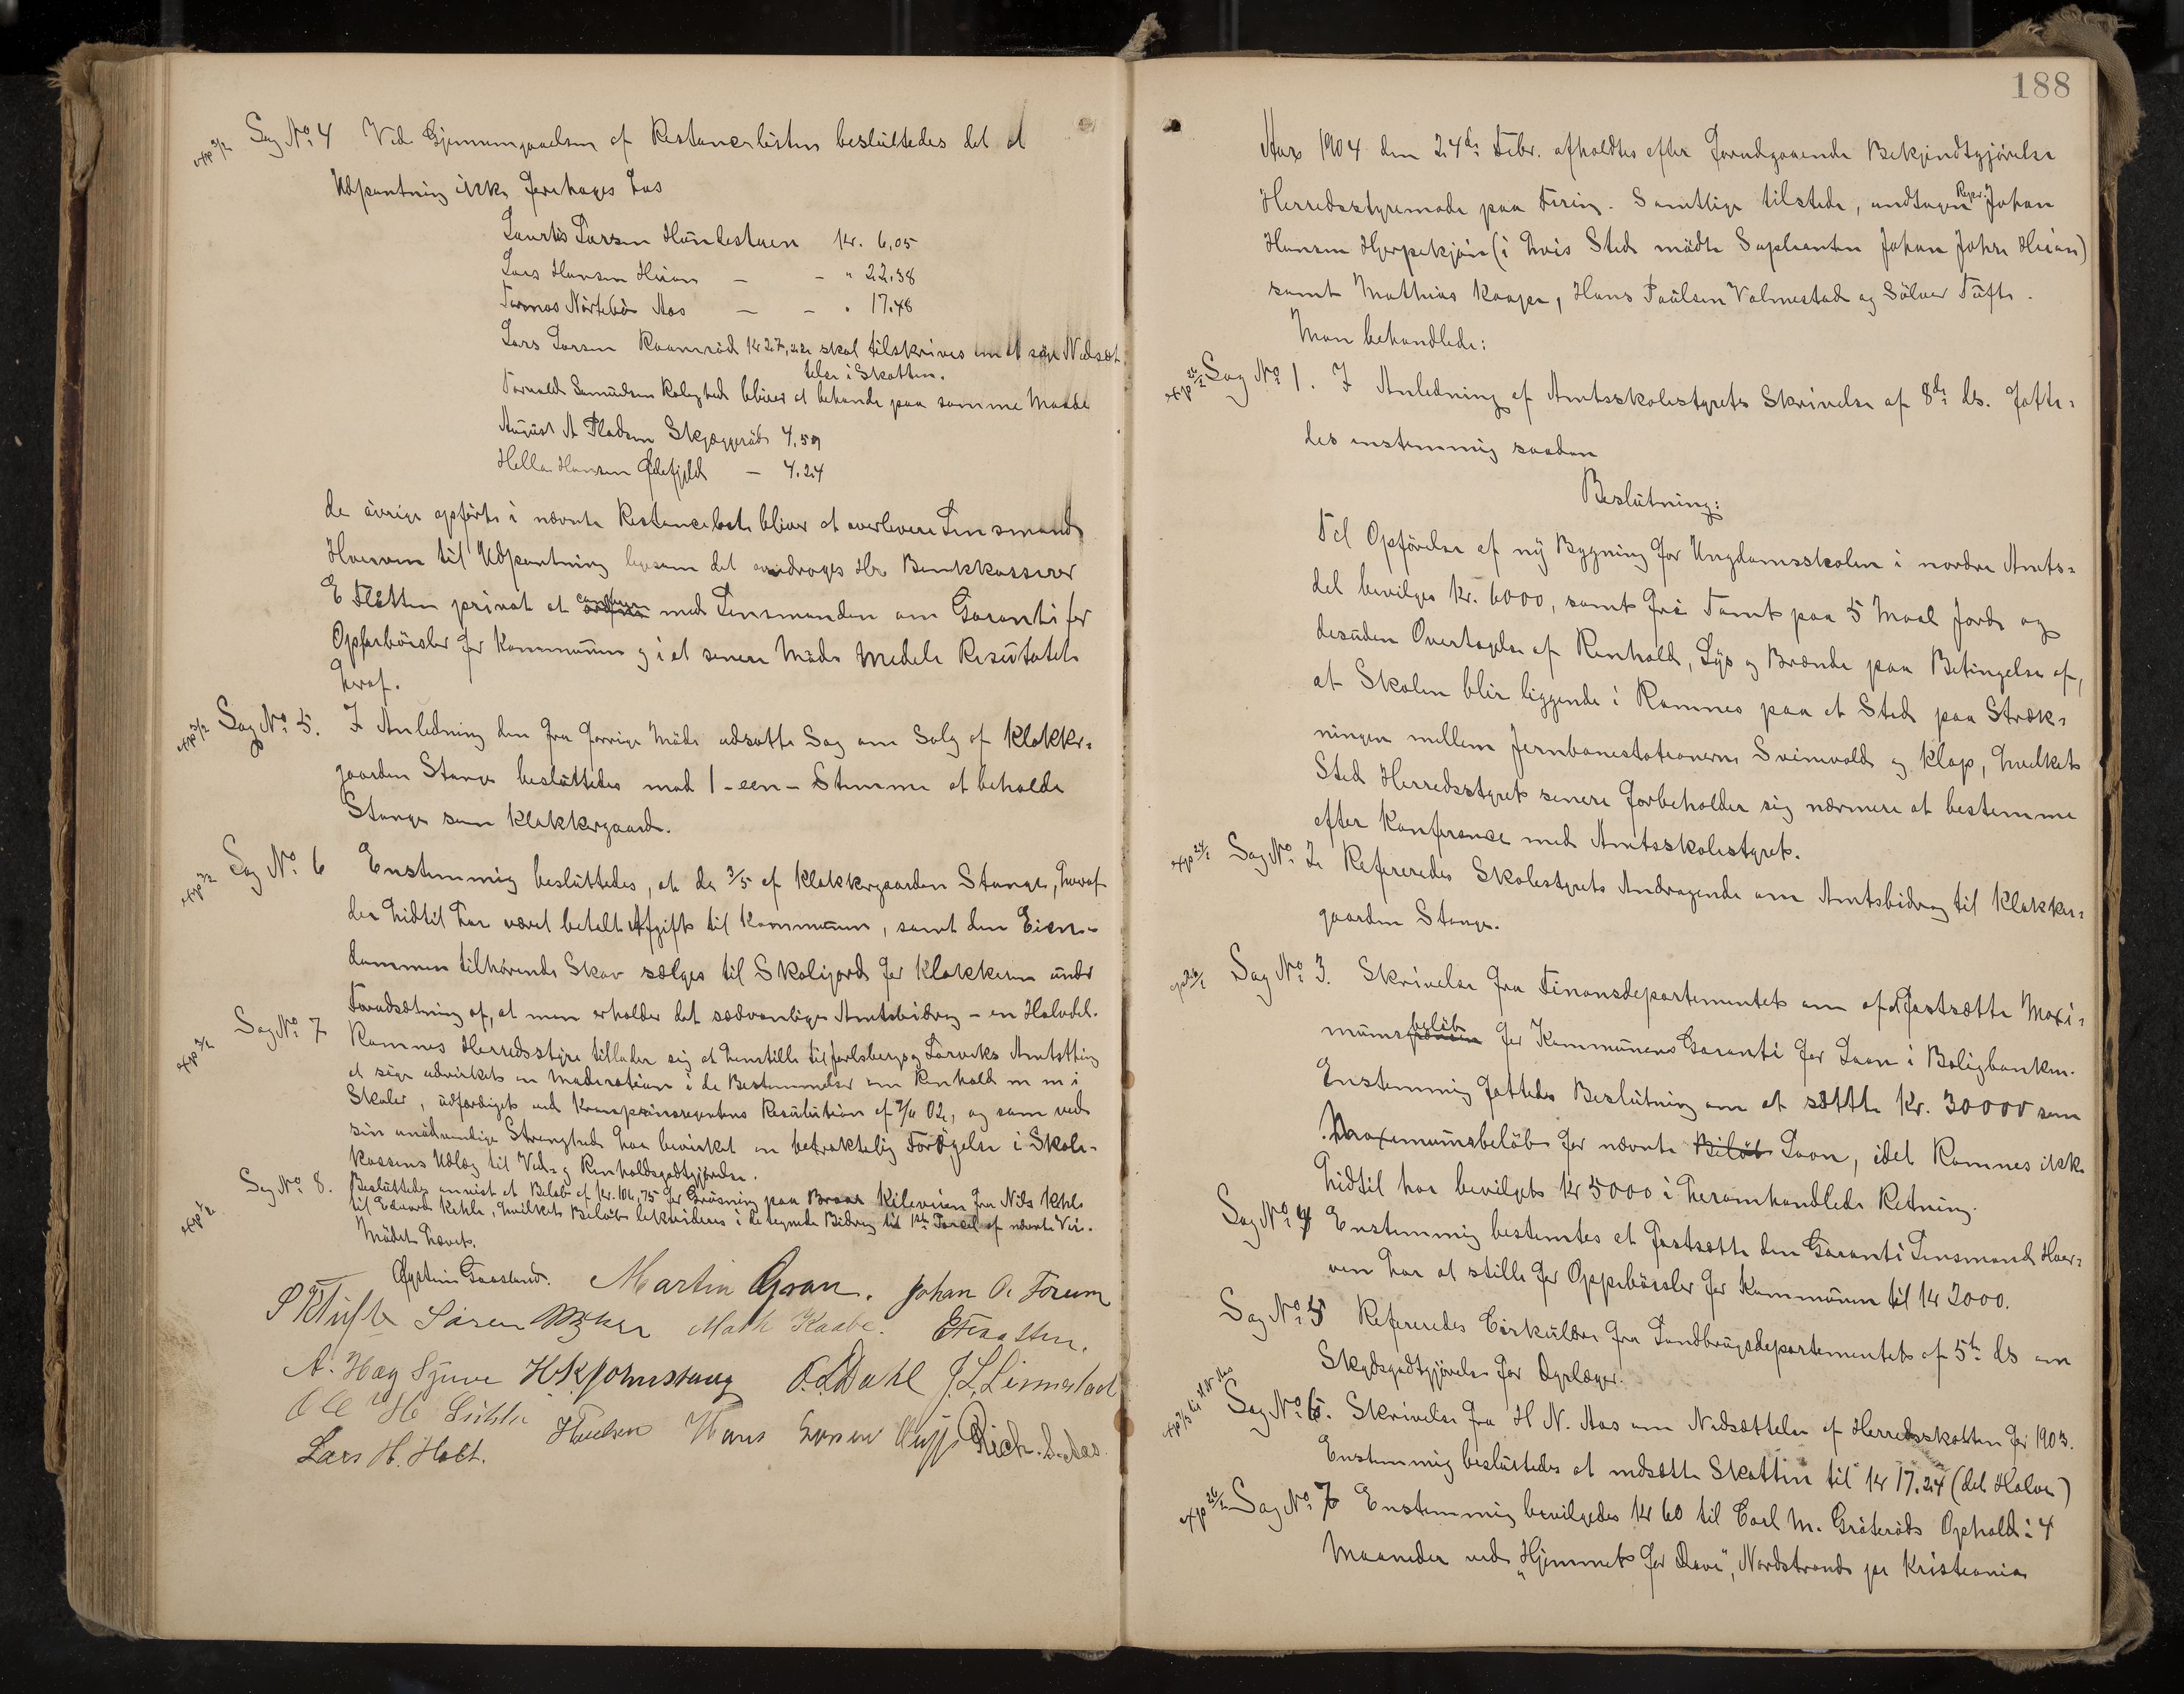 exp 3/2 Sag No 4 Ved Gjennemgaaelsen af Restancelisten besluttedes det at
Udpantning ikke foretages hos
Lauritz Larsen Hundestuen Kr. 6,05
Lars Hansen Heian — - " 22.38
Aas — - " 17.48
Lars Larsen Raamröd Kr 27,22 skal tilskrives om at søge Nedsæt
telse i Skatten.
Samuelsen Rolighed bliver at behandle paa samme Maade
August A Pladsen Skjæggeröd 4,59
Hella Hansen — 4.24
de övrige opförte i nævnte Restanceliste bliver at overlevere Lensmand
Hverven til Udpantning ligesom det andrages Hr Bankkasserer
E Fletten privat at conferere med Lensmanden om Garanti for
Oppebörsler for Kommunen og i et senere Möde meddele Resultatet
heraf.
exp 3/2 Sag No 5. I Anledning den fra forrige Möde udsatte Sag om Salg af Klokker-
gaarden Stange besluttedes mod 1 - een - Stemme at beholde
Stange som Klokkergaard.
exp 3/2 Sag No 6 Enstemmig besluttedes, at de 3/5 af Klokkergaarden Stange, hvoraf
der hidtil har været betalt Afgift til Kommunen, samt den Eien-
dommen tilhørende Skov sælges til Skolejord for Klokkeren under
Forudsætning af, at man erholder det sædvanlige Amtsbidrag - en Halvdel.
exp 3/2 Sag No 7 Ramnes Herredsstyre tillader sig at henstille til Jarlsberg og Larviks Amtsthing
at söge udvirket en Moderation i de Bestemmelser om Renhold m m i
Skoler, udfærdiget ved Kronprinsregentens Resolution af 02, og som ved
sin unödvendige Strenghed har bevirket en betraktelig Forögelse i Skole-
kassens Udlæg til Ved- og Renholdsgodtgjørelse.
exp 3/2 Sag No 8. Besluttedes anvist et Belöb af Kr. 104,75 for Grüsning paa Kileveien fra Nils Kihle
til Edvard Kihle, hvilket Beløb lekvideres i de tegnede Bidrag til 1ste Parcel af nævnte Vei.
Mödet hævet.
Øystein Gaasland. Martin Gran. Johan A. Forum
S K Tufte Søren Math Kaabe. E Fletten.
A. Hag Sjuve H K Johnstang O. L. Dahl J. L. Linnestad
Ole H Lars Hans Rich. L. Aas.
Lars H. Holt.
188
Aar 1904 den 24de Febr. afholdtes efter forudgaaende Bekjendtgjörelse
Herredsstyremøde paa Fresti. Samtlige tilstede, undtagen Johan
Hansen Hjerpekjøn (i hvis Sted mödte Suplianten Johan Johns Heian)
samt Mathias Kaape, Hans Paulsen Valmestad og Sölver Tufte.
Man behandlede:
exp 26/2 Sag No 1. I Anledning af Amtsskolestyrets Skrivelse af 8de ds. fatte-
des enstemmig saadan
Beslutning:
Til Opförelse af ny Bygning for Ungdomsskolen i nordre Amts-
del bevilges Kr. 6000, samt fri Tomt paa 5 Maal Jord og
desuden Overtagelse af Renhold, Lys og Brænde paa Betingelse af,
at Skolen blir liggende i Ramnes paa et Sted paa Stræk-
ningen mellem Jernbanestationerne Svinevold og Klop, hvilket
Sted Herredsstyret senere forbeholder sig nærmere at bestemme
efter Konferance med Amtsskolestyret.
exp 24/2 Sag No 2 Refereredes Skolestyrets Andragende om Amtsbidrag til Klokker-
gaarden Stange.
Sag No 3. Skrivelse fra Finansdepartementet om at fastsætte Maxi-
mumsbelöb for Kommunens Garanti for Laan i Boligbanken.
Enstemmig fattedes Beslutning om at sætte Kr. 30000 som
Maxemumsbelöb for nævnte Belöb Laan, idet Ramnes ikke
hidtil har bevilget Kr 5000 i heromhandlede Retning.
Sag No 4 Enstemmig bestemtes at fastsætte den Garanti Lensmand Hver-
ven har at stille for Oppebörsler for Kommunen til Kr 2000.
Sag No 5 Refereredes Cirkulære fra Landbrugsdepartementet af 5te ds om
Skydsgodtgjörelse for Dyrlæger.
exp 1/3 til H N Aas Sag No 6. Skrivelse fra H N. Aas om Nedsættelse af Herredsskatten for 1903.
Enstemmig besluttedes at nedsætte Skatten til Kr 17.24 (det Halve)
exp 26/2 Sag No 7 Enstemmig bevilgedes Kr 60 til Carl M. Gråteröds Ophold i 4
Maaneder ved "Hjemmet for Døve", Nordstrand pr Kristiania